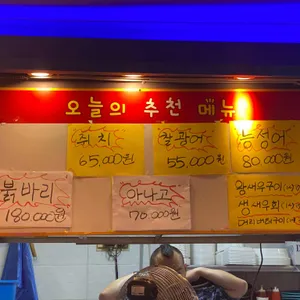 오늘의 추천 메뉴
쥐치
65,000원
찰광어
55,000원
능성어
80,000원
붉바리
180,000원
아나고
70,000원
왕새우구이(1개)
생새우회(1개)
머리버터구이